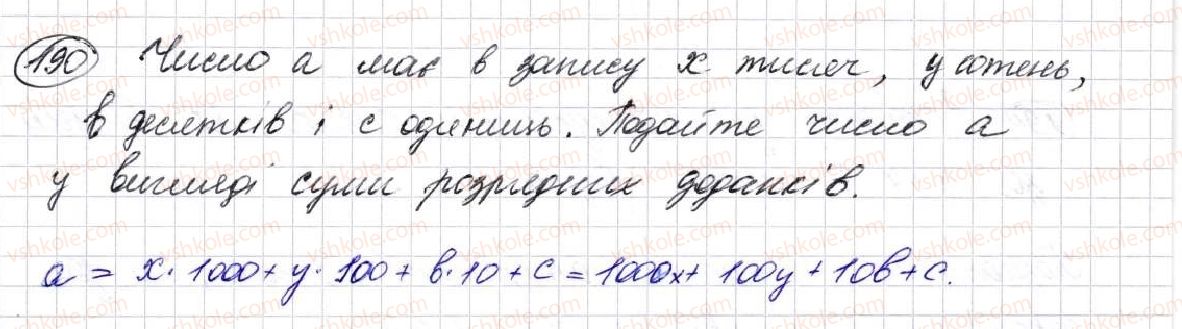 190 Число a має в запису x тисяч, y сотень,
b десятків і c одиниць. Подайте число a
у вигляді суми розрядних доданків.
a = x · 1000 + y · 100 + b · 10 + c = 1000x + 100y + 10b + c.